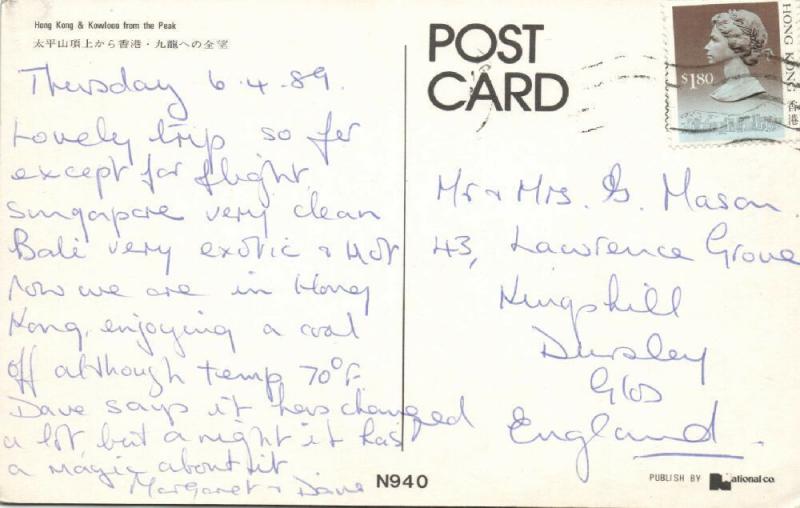 Hong Kong & Kowloon from the Peak
太平山頂上から香港・九龍への全望
Thursday 6.4.89.
Lovely trip so far
except for flight.
Singapore very clean
Bali very exotic & Hot
now we are in Hong
Kong, enjoying a cool
off although temp 70°F.
Dave says it has changed
a lot but a night it has
a magic about it
Margaret & Dave
N940
POST
CARD
$1.80
HONG KONG 香港
Mr & Mrs. G. Mason.
43, Lawrence Grove
Kingshill
Dursley
Glos
England.
PUBLISH BY National co.